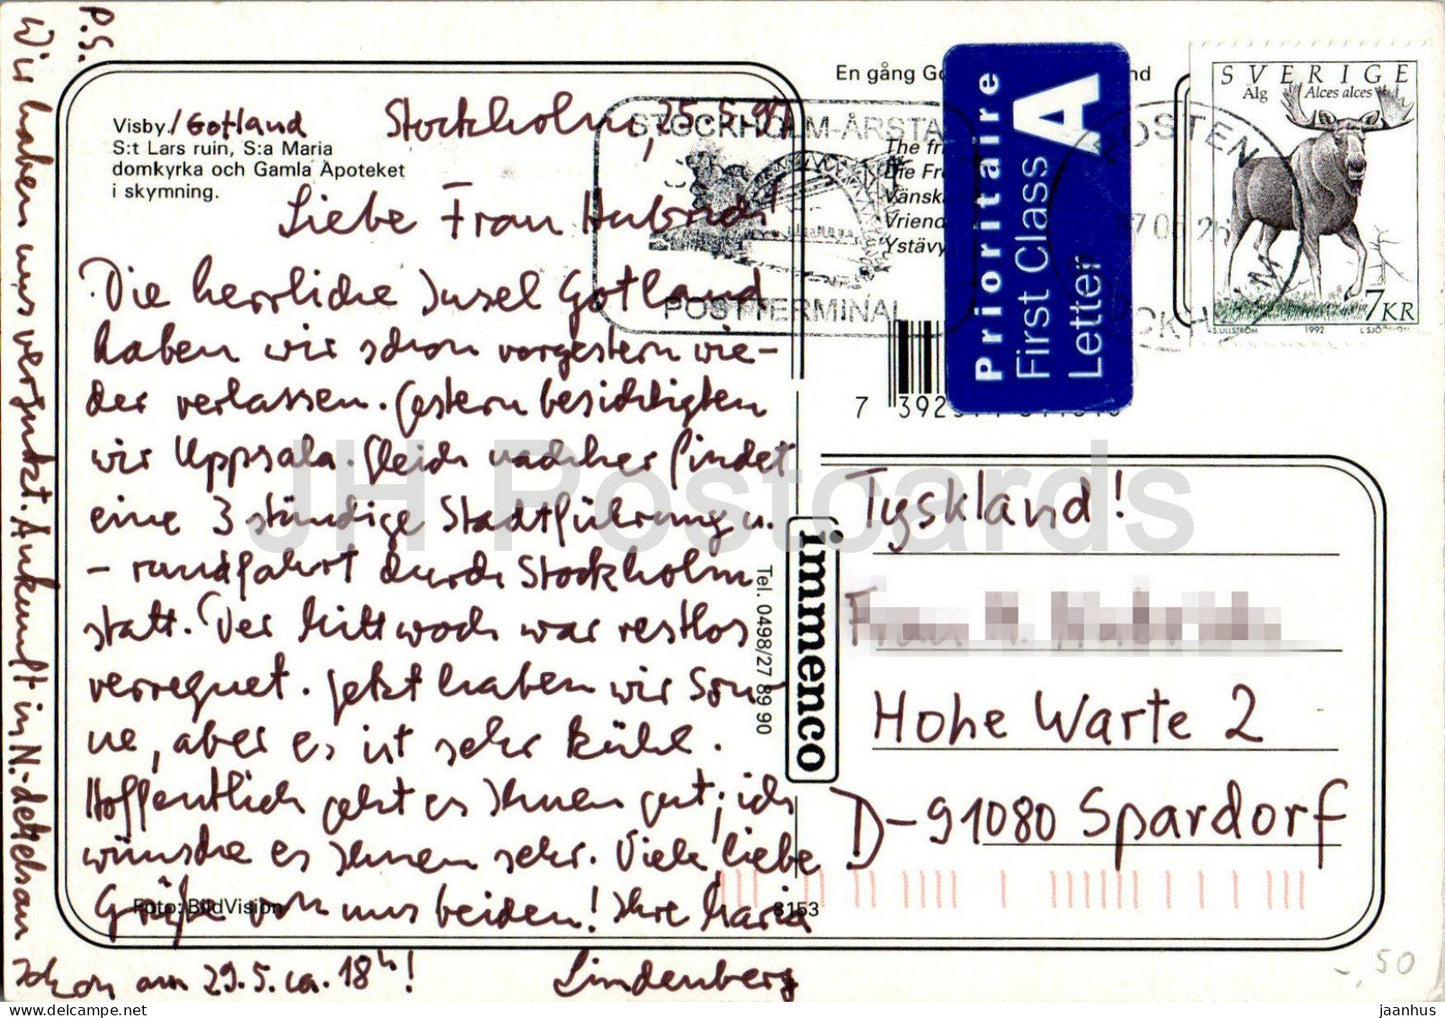 P.S.
Wir haben uns verguckt. Ankunft in N.-
schon am 29.5. ca. 18h!
Visby./Gotland
S:t Lars ruin, S:a Maria
domkyrka och Gamla Apoteket
i skymning.
Stockholm, 25.5.97
Liebe Frau
Die herrliche Insel Gotland
haben wir schon vorgestern wie-
der verlassen. Gestern besichtigten
wir Uppsala. Gleich nachher findet
eine 3 stündige Stadtführung u.
- rundfahrt durch Stockholm
statt. Der Mittwoch war restlos
verregnet. Jetzt haben wir Son-
ne, aber es ist sehr kühl.
Hoffentlich geht es Ihnen gut; ich
wünsche es Ihnen sehr. Viele liebe
Grüße von uns beiden! Ihre Maria
Lindenberg
Foto: BildVision
8153
immenco
Tel. 0498/27 89 90
En gång
The
Die
Vänsk
Vriend
Ystävy
STOCKHOLM-ÅRSTA
POSTTERMINAL
A
Prioritaire
First Class
Letter
POSTEN
SVERIGE
Älg Alces alces
7KR
S.ULLSTRÖM 1992
7 392
Tyskland!
Frau
Hohe Warte 2
D-91080 Spardorf
-,50
JH Postcards
jaanhus